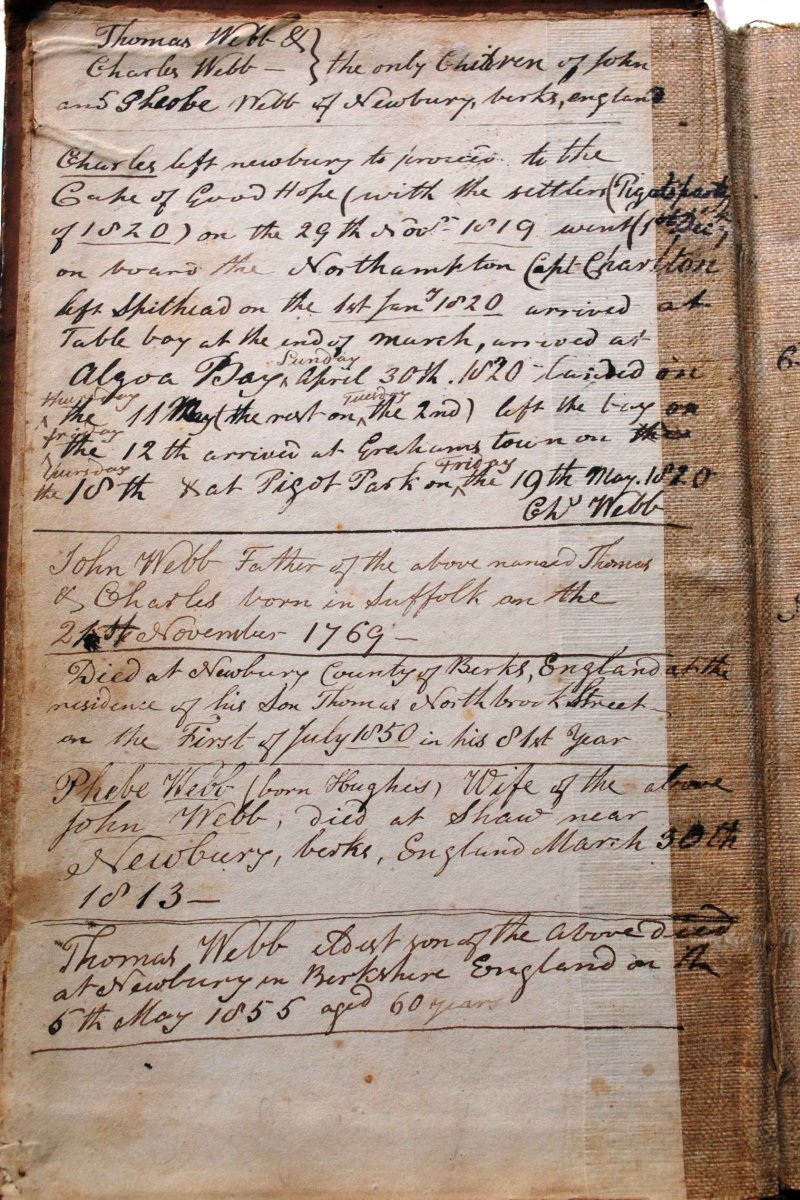 Thomas Webb &
Charles Webb — } the only Children of John
and Pheobe Webb of Newbury, berks, england
Charles left newbury to proceed to the
Cape of Good Hope (with the settlers (Pigots party
of 1820) on the 29th Novr 1819 went (1st Decr)
on board the Northampton Capt Charlton
left Spithead on the 1st Jany 1820 arrived at
Table bay at the end of march, arrived at
Algoa Bay Sunday April 30th. 1820 - landed on
thursday the 11 May (the rest on Tuesday the 2nd) left the bay on
friday the 12th arrived at Grahams town on
the thursday 18th & at Pigot Park on Friday the 19th May. 1820
Chs Webb
John Webb Father of the above named Thomas
& Charles born in Suffolk on the
November 1769 —
Died at Newbury County of Berks, England at the
residence of his Son Thomas Northbrook Street —
on the First of July 1850 in his 81st Year
Phebe Webb (born Hughes) Wife of the above
John Webb, died at Shaw near
Newbury, berks, England March 30th
1813 —
Thomas Webb eldest son of the above died
at Newbury in Berkshire England on the
5th May 1855 aged 60 years
6